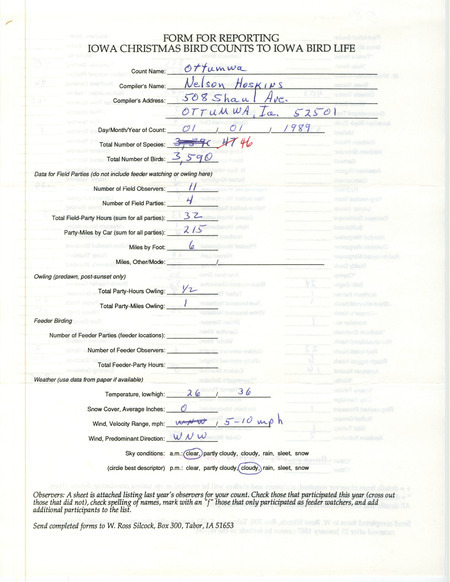 FORM FOR REPORTING
IOWA CHRISTMAS BIRD COUNTS TO IOWA BIRD LIFE
Count Name: Ottumwa
Compiler's Name: Nelson Hoskins
Compiler's Address: 508 Shaul Ave.
OTTUMWA, Ia. 52501
Day/Month/Year of Count: 01 , 01 , 1989
Total Number of Species: 46
Total Number of Birds: 3,590
Data for Field Parties (do not include feeder watching or owling here)
Number of Field Observers: 11
Number of Field Parties: 4
Total Field-Party Hours (sum for all parties): 32
Party-Miles by Car (sum for all parties): 215
Miles by Foot: 6
Miles, Other/Mode: /
Owling (predawn, post-sunset only)
Total Party-Hours Owling: 1/2
Total Party-Miles Owling: 1
Feeder Birding
Number of Feeder Parties (feeder locations):
Number of Feeder Observers:
Total Feeder-Party Hours:
Weather (use data from paper if available)
Temperature, low/high: 26 / 36
Snow Cover, Average Inches: 0
Wind, Velocity Range, mph: WNW / 5-10 mph
Wind, Predominant Direction: WNW
Sky conditions: a.m.: clear, partly cloudy, cloudy, rain, sleet, snow
(circle best descriptor) p.m.: clear, partly cloudy, cloudy, rain, sleet, snow
Observers: A sheet is attached listing last year's observers for your count. Check those that participated this year (cross out
those that did not), check spelling of names, mark with an "f" those that only participated as feeder watchers, and add
additional participants to the list.
Send completed forms to W. Ross Silcock, Box 300, Tabor, IA 51653